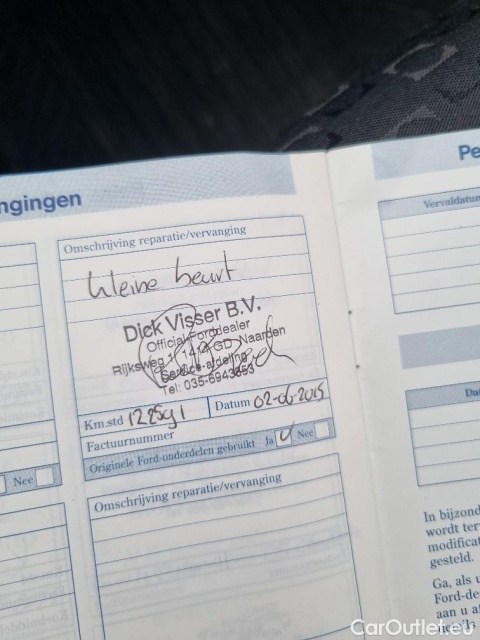 ngingen
Omschrijving reparatie/vervanging
kleine beurt
Dick Visser B.V.
Official Forddealer
Rijksweg 1 1412 GD Naarden
Service-afdeling
Tel: 035-6943653
Km.std
Datum 02-06-2015
Factuurnummer
Originele Ford-onderdelen gebruikt Ja Nee
Nee
Omschrijving reparatie/vervanging
Pe
Vervaldatum
Da
In bijzond
wordt ter
modificat
gesteld.
Ga, als u
Ford-de
aan u af
CarOutlet.eu